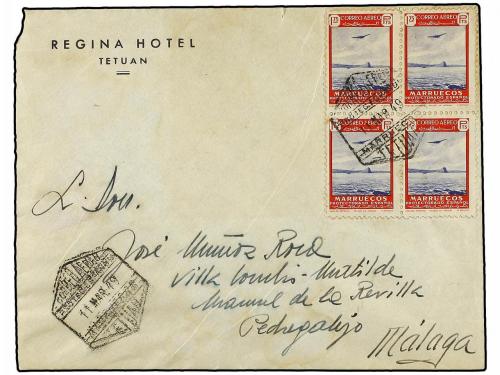 REGINA HOTEL
TETUAN
CORREO AEREO
PTS
MARRUECOS
PROTECTORADO ESPAÑOL
CORREO AEREO
PTS
MARRUECOS
PROTECTORADO ESPAÑOL
CORREO AEREO
PTS
MARRUECOS
PROTECTORADO ESPAÑOL
CORREO AEREO
PTS
MARRUECOS
PROTECTORADO ESPAÑOL
José Muñoz Roca
Villa Matilde
Manuel de la Revilla
Pedregalejo
Málaga
11 MAR. 49